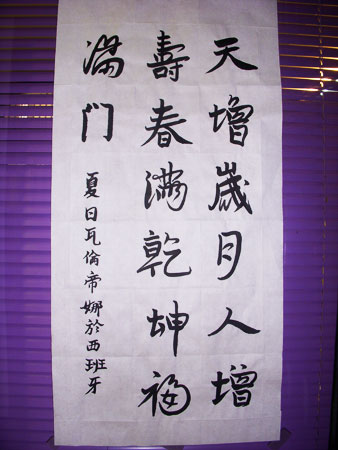 天增歲月人增
壽春滿乾坤福
滿门
夏日瓦倫帝娜於西班牙